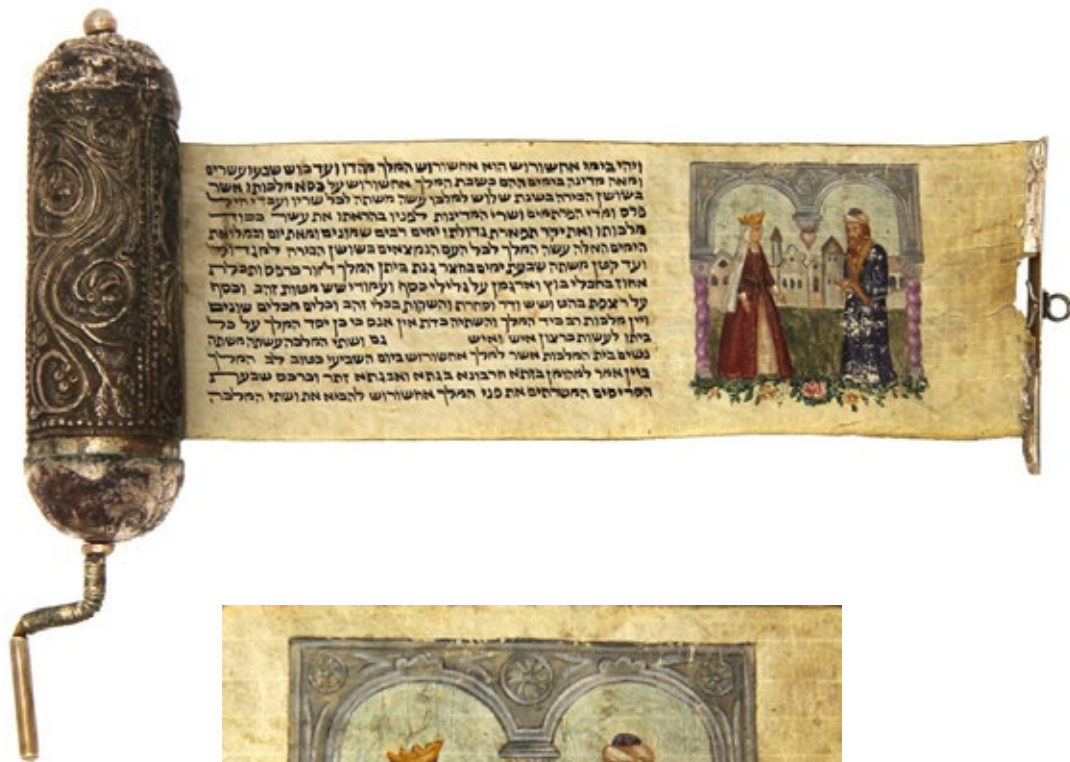 ויהי בימי אחשורוש הוא אחשורוש המלך מהדו ועד כוש שבע ועשרים
ומאה מדינה בימים ההם כשבת המלך אחשורוש על כסא מלכותו אשר
בשושן הבירה בשנת שלוש למלכו עשה משתה לכל שריו ועבדיו חיל
פרס ומדי הפרתמים ושרי המדינות לפניו בהראתו את עשר כבוד
מלכותו ואת יקר תפארת גדולתו ימים רבים שמונים ומאת יום ובמלואת
הימים האלה עשה המלך לכל העם הנמצאים בשושן הבירה למגדול
ועד קטן משתה שבעת ימים בחצר גנת ביתן המלך חור כרפס ותכלת
אחוז בחבלי בוץ וארגמן על גלילי כסף ועמודי שש מטות זהב וכסף
על רצפת בהט ושש ודר וסחרת והשקות בכלי זהב וכלים מכלים שונים
ויין מלכות רב כיד המלך והשתיה כדת אין אנס כי כן יסד המלך על כל
ביתו לעשות כרצון איש ואיש גם ושתי המלכה עשתה משתה
נשים בית המלכות אשר למלך אחשורוש ביום השביעי כטוב לב המלך
ביין אמר למהומן בזתא חרבונא בגתא ואבגתא זתר וכרכס שבעת
הסריסים המשרתים את פני המלך אחשורוש להביא את ושתי המלכה